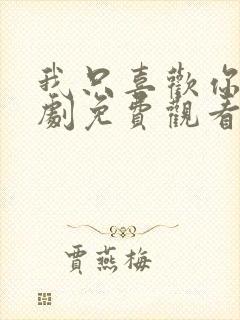 我只喜歡你
劇免費觀看
賈燕梅